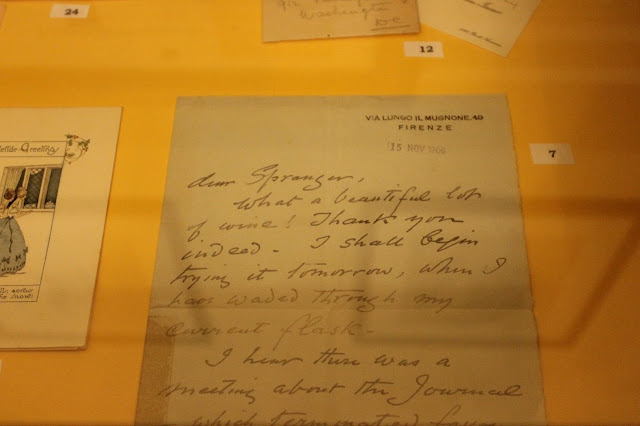 24
Washington
DC
12
VIA LUNGO IL MUGNONE, 49
FIRENZE
15 NOV 1906
7
Greeting
dear Spranger,
What a beautiful lot
of wine! Thank you
indeed - I shall begin
trying it tomorrow, when I
have waded through my
current flask -
I hear there was a
meeting about the Journal
- which terminated